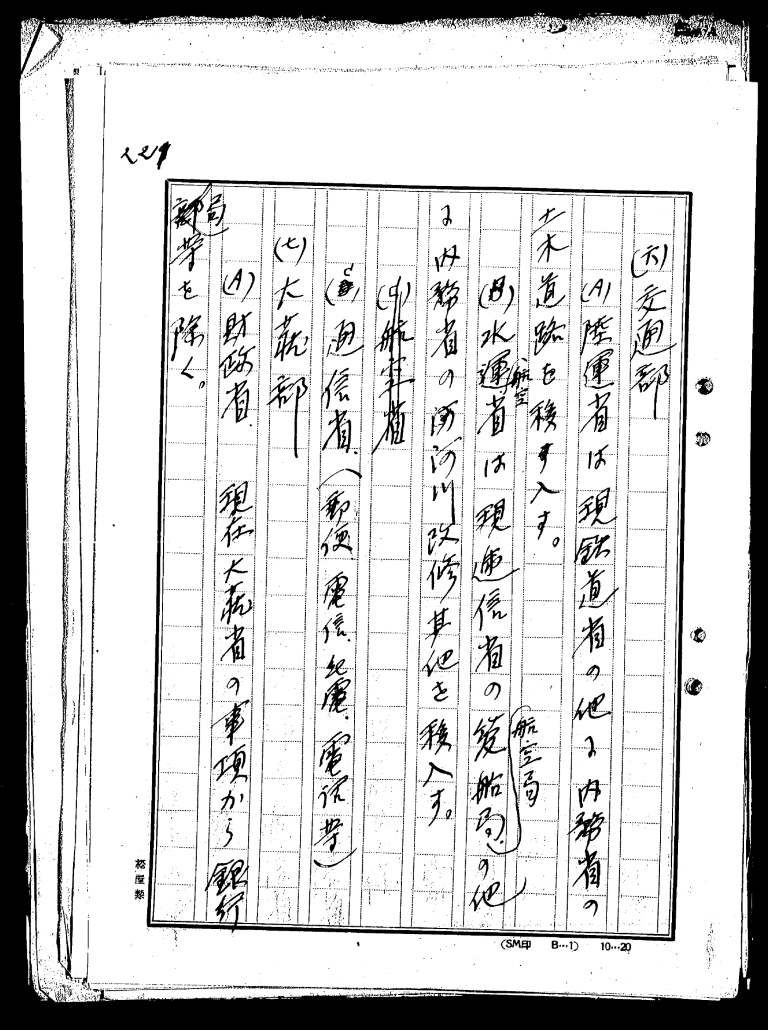 221
(六)交通部
(A)陸運省は現鉄道省の他に内務省の
土木道路を移す入す。
(B)水運航空省は現逓信省の管船局、航空局の他
に内務省の河川改修其他を移入す。
(C)航空省
(C)逓信省、(郵便、電信、電話等)
(七)大蔵部
(A)財政省、現在大蔵省の事項から銀行
局等を除く。
松屋製
(SM印 B…1) 10…20